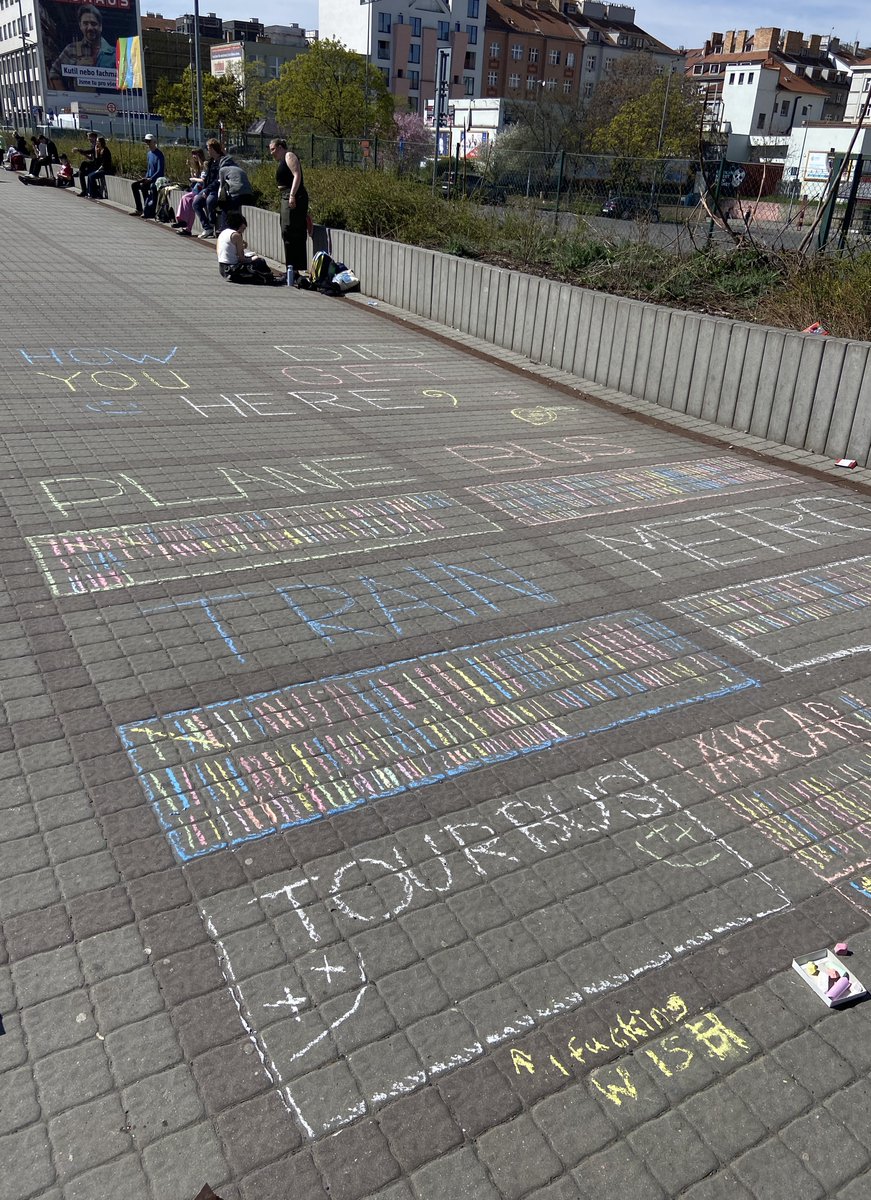 Kutil nebo fachman
HOW DID
YOU GET
HERE?
PLANE BUS
TRAIN METRO
TOURBUS CAR
↑ I fucking
WISH